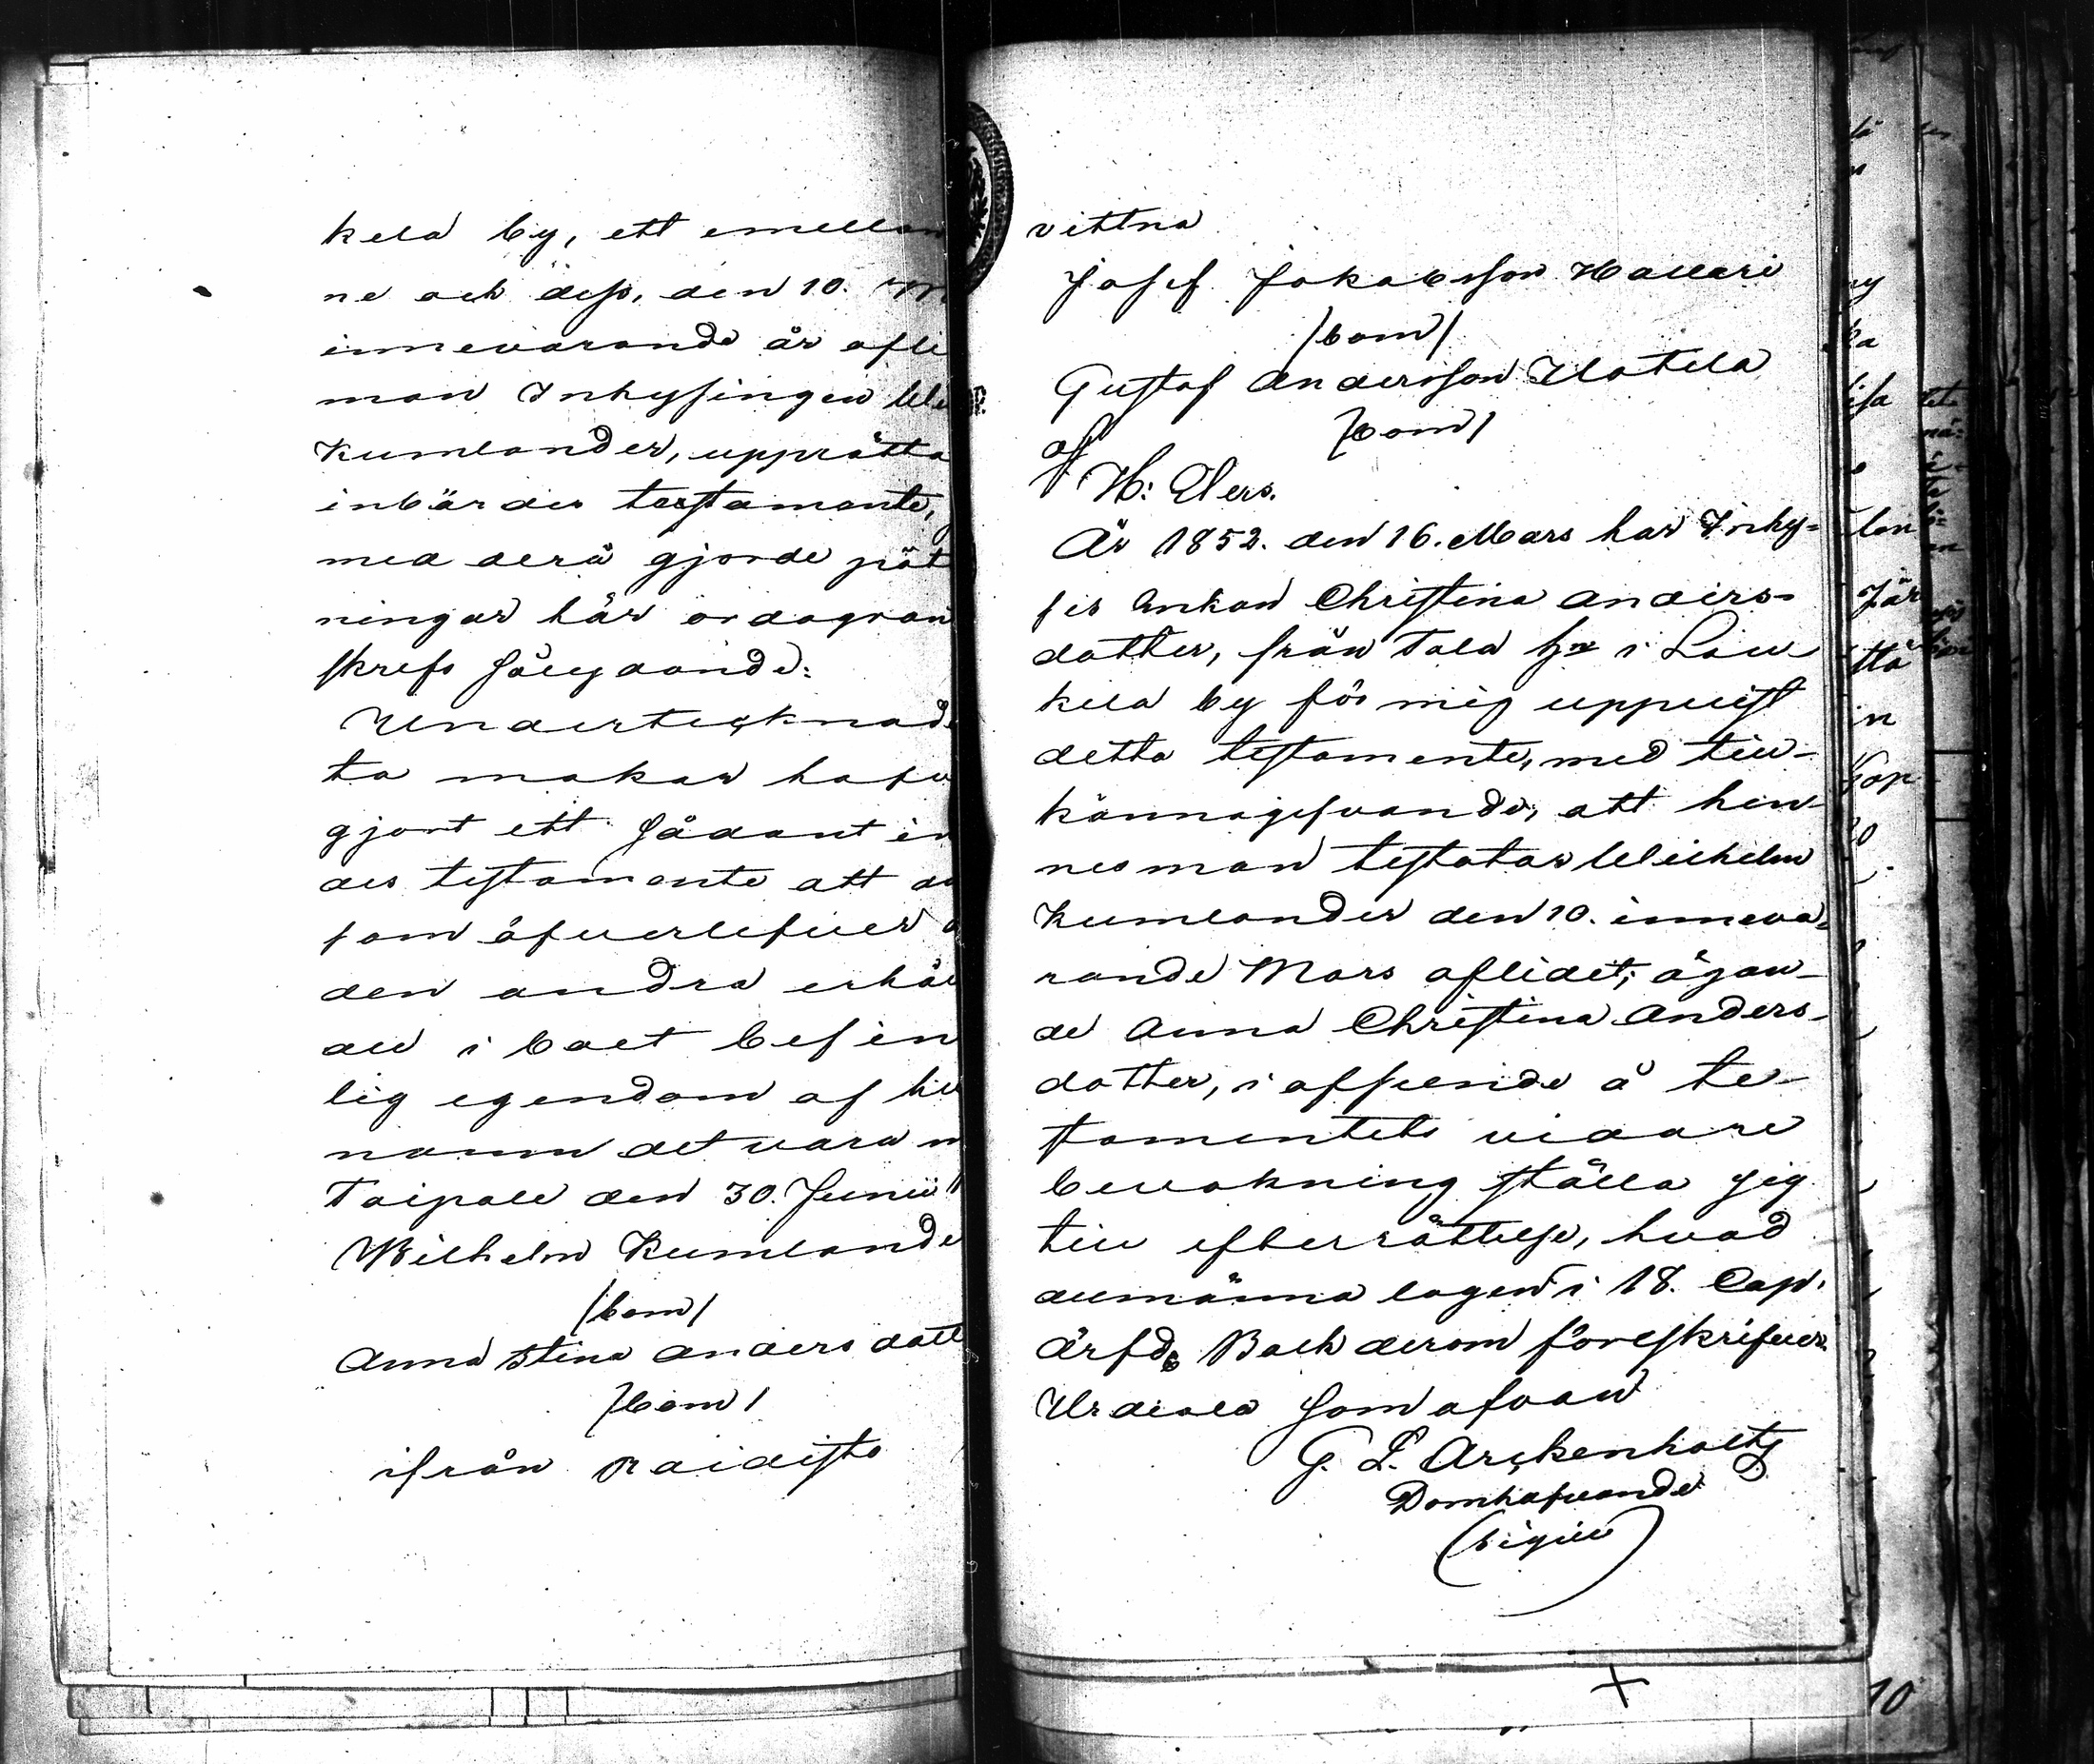 kela by, ett emellan
ne och dess, den 10. M
innevarande år afli
man Inhysingen Wi
Kumlander, upprätta
inbördes testamente,
med derå gjorde påt
ningar här ordagran
skrefs följgande:
Undertecknad
ta makar hafv
gjort ett sådant in
des testamente att de
som öfverlefver
den andra erhål
all i boet befin
lig egendom af hv
namn det vara m
Taipale den 30. Junii
Wilhelm Kumlande
/bom/
Anna Stina Anders dott
/bom/
ifrån Raidisto
vittna
Josef Jakobsson Hallari
/bom/
Gustaf Andersson Ylotila
/bom/
af
H: Elers.
År 1852. den 16. Mars har Inhy=
ses Enkan Christina Anders=
dotter, från Tala hn i Lau
kela by för mig uppvist
detta testamente, med till-
kännagifvande, att hen-
nes man testator Wilhelm
Kumlander den 10. inneva=
rande Mars aflidit; ägan-
de Anna Christina Anders-
dotter, i afseende å te-
stamentets vidare
bevakning ställa sig
till efterrättelse, hvad
allmänna lagen i 18. Cap.
Ärfda Balk derom föreskrifver.
Urdiala som ofvan
G. L. Arckenholtz
Domhafvande
(Sigill)
10